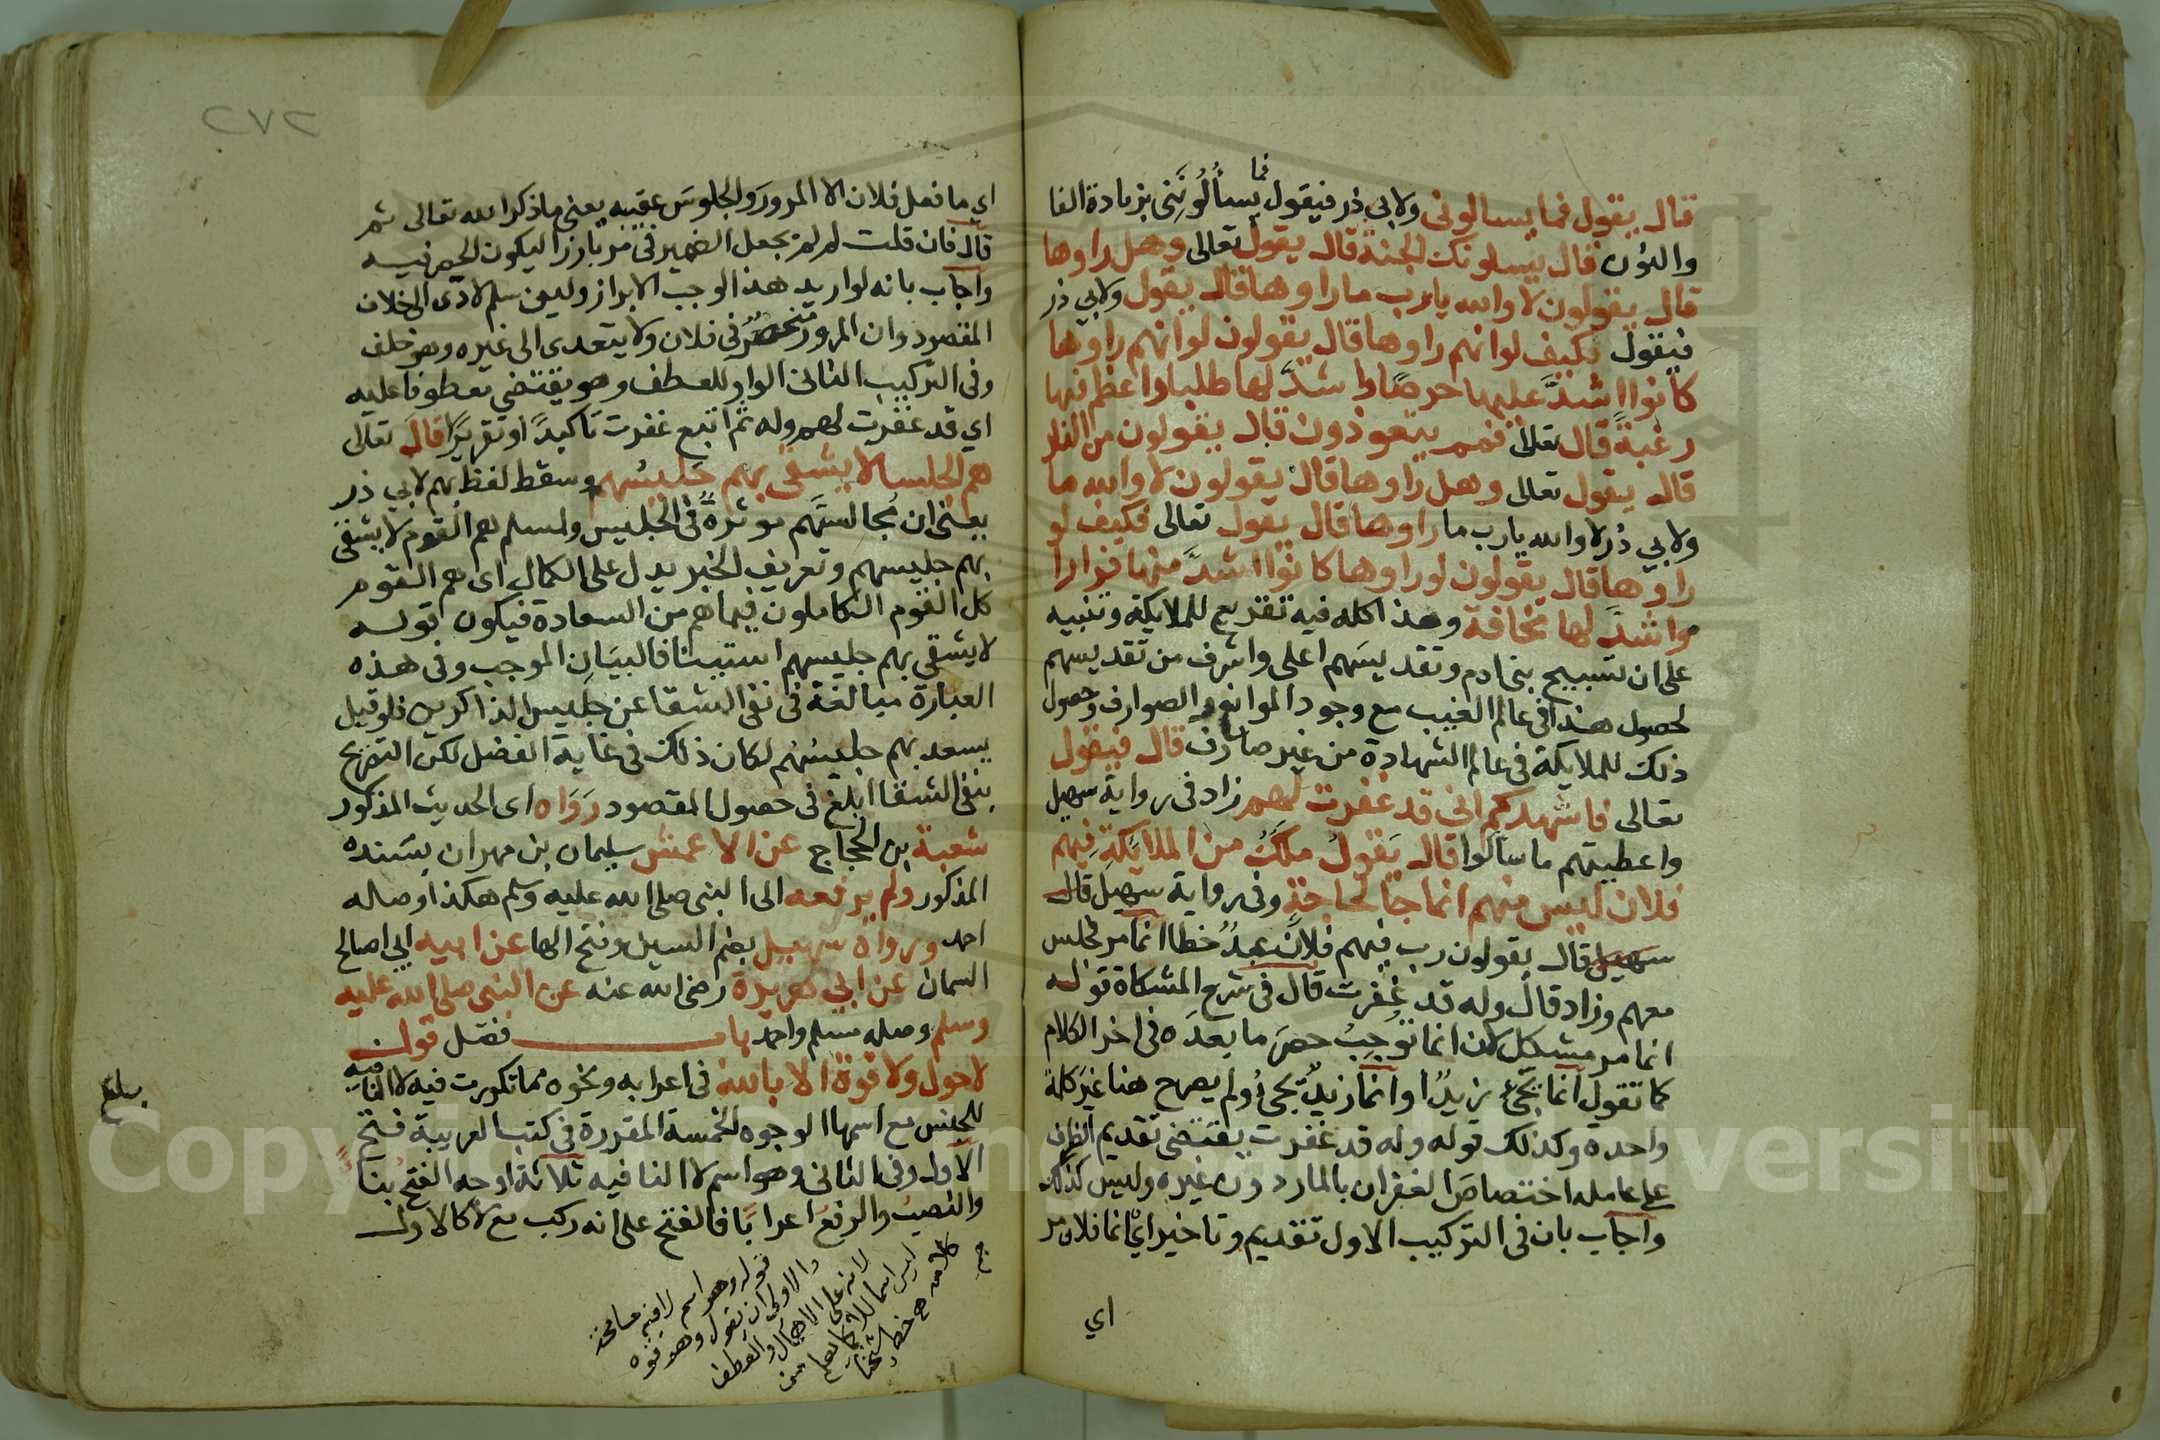 قال يقول فما يسالونى ولابي ذر فيقول فما يسألُونَنِى بزيادة الفا
والنون قال يسلونك الجنة قال يقول تعالى وهل راوها
قال يقولون لا والله يا رب ما راوها قال يقول ولابي ذر
فيقول فكيف لو انهم راوها قال يقولون لو انهم راوها
كانوا اشدَّ عليها حرصًا واشدَّ لها طلبا واعظم فيها
رغبةً قال تعالى فمم يتعوذون قال يقولون من النار
قال يقول تعالى وهل راوها قال يقولون لا والله ما
ولابي ذر لا والله يا رب ما راوها قال يقول تعالى فكيف لو
راوها قال يقولون لو راوها كانوا اشدَّ منها فرارا
واشدَّ لها مخافة وهذا كله فيه تقريع للملايكة وتنبيه
على ان تسبيح بنى ادم وتقديسَهم اعلى واشرف من تقديسهم
لحصول هذا فى عالم الغيب مع وجود الموانع والصوارف وحصول
ذلك للملايكة فى عالم الشهادة من غير صارف قال فيقول
تعالى فاشهدكم انى قد غفرت لهم زاد فى رواية سهيل
واعطيتهم ما سالوا قال يَقولُ مَلَكٌ من الملائكةِ فِيهم
فلان ليس منهم انما جا لحاجةٍ وفى رواية سهيل قال
سهيل قال يقولون رب فيهم فلانٌ عبدٌ خطا انما مر فجلس
معهم وزاد قال وله قد غفرت قال فى شرح المشكاة قوله
انما مر مشكل لان انما تُوجِبُ حصرَ ما بعدَه فى اخر الكلام
كما تقول انما يجىءُ زيدٌ او انما زيدٌ يجىءُ ولم يصرح هنا غيرَ كلمة
واحدة وكذلك قوله وله قد غفرت يقتضى تقديم الظرف
على عامله اختصاصَ الغفران بالمار دون غيره وليس كذلك
واجاب بان فى التركيب الاول تقديم وتاخير اى انما فلان مر
اي
٢٧٢
اي ما فعل فلان الا المرورَ والجلوسَ عقيبه يعنى ما ذكر الله تعالى ثم
قال فان قلت لم لم يجعل الضمير فى مر بارزا ليكون الحصر فيه
واجاب بانه لو اريد هذا لوجب الابراز ولين سلم لادى الى خلاف
المقصود وان المرور منحصرٌ فى فلان ولا يتعدى الى غيره وهو خلف
وفى التركيب الثانى الواو للعطف وهو يقتضى معطوفا عليه
اي قد غفرت لهم وله ثم اتبع غفرت تاكيدًا او تقريرًا قال تعالى
هم الجلسا لا يشقى بهم جَليسُهم وسقط لفظ بهم لابي ذر
يعنى ان مُجالستَهم موثرةٌ فى الجليس ولمسلم هم القوم لا يشقى
بهم جليسهم وتعريف الخبر يدل على الكمال اى هم القوم
كل القوم الكاملون فيما هم من السعادة فيكون قوله
لا يشقى بهم جليسهم استينافا لبيَانِ الموجب وفى هذه
العبارة مبالغة فى نفى الشقا عن جليس الذاكرين فلو قيل
يسعد بهم جليسُهم لكان ذلك فى غاية الفضل لكن التصريح
بنفى الشقا ابلغ فى حصول المقصود رَوَاه اى الحديث المذكور
شعبة بن الحجاج عن الاعمش سليمان بن مهران بسَنده
المذكور ولم يرفعه الى النبى صلى الله عليه وسلم هكذا وصله
احمد ورواه سهيل بضم السين وفتح الها عن ابيه ابي صالح
السمان عن ابي هريرة رضى الله عنه عن النبى صلى الله عليه
وسلم وصله مسلم واحمد باب فضل قول
لا حول ولا قوة الا بالله فى اعرابه ونحوه مما تكررت فيه لا النافيه
للجنس مع اسمها الوجوه الخمسة المقررة فى كتب العربية فتح
الاول وفى الثانى وهو اسم لا النافيه ثلاثة اوجه الفتح بناً
والنصبُ والرفعُ اعرابًا فالفتح على انه ركب مع لا كالاول
بلغ
قوله وهو اسم لا فيه مسامحة
والاولى ان يقول وهو قوة
لانه على الاهمال والعطف
ليس اسما للا كما يعلم من
كلامه صح خط شيخنا